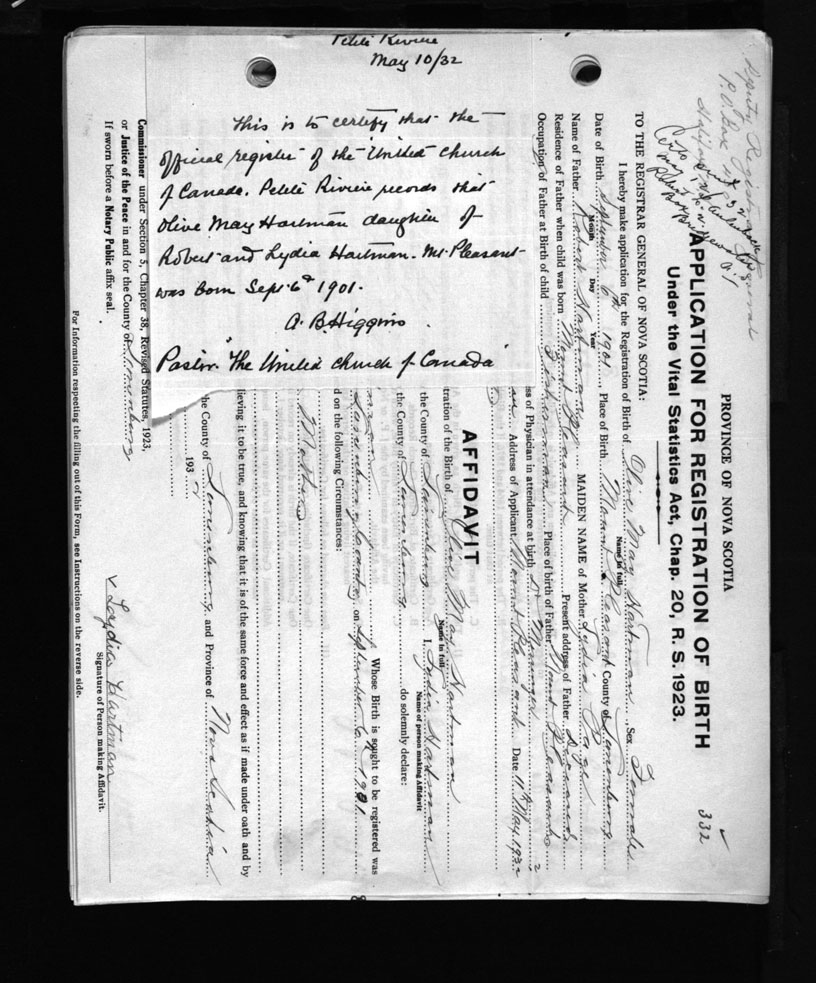 Petite Riviere
May 10/32
This is to certify that the
official register of the United Church
of Canada. Petite Riviere records that
Olive May Hartman daughter of
Robert and Lydia Hartman. Mt. Pleasant
was born Sept. 6th 1901.
A. B. Higgins
Pastor. "The United Church of Canada"
Deputy Registrar General
P.O. Box
Halifax
332
PROVINCE OF NOVA SCOTIA
APPLICATION FOR REGISTRATION OF BIRTH
Under the Vital Statistics Act, Chap. 20, R. S. 1923.
TO THE REGISTRAR GENERAL OF NOVA SCOTIA:
I hereby make application for the Registration of Birth of Olive May Hartman Sex Female
Name in full
Date of Birth September 6th 1901 Place of Birth Mount Pleasant County of Lunenburg
Month Day Year
Name of Father Robert Hartman MAIDEN NAME of Mother Lydia
Residence of Father when child was born Mount Pleasant Present address of Father
Occupation of Father at Birth of child Fisherman Place of birth of Father Mount Pleasant
ss of Physician in attendance at birth
Address of Applicant Mount Pleasant Date 11th May 1932
AFFIDAVIT
tration of the Birth of Olive May Hartman
Name in full
the County of Lunenburg I, Lydia Hartman
Name of person making Affidavit
the County of Lunenburg do solemnly declare:
Whose Birth is sought to be registered was
Lunenburg County on September 6th 1901
d on the following Circumstances:
Mother
lieving it to be true, and knowing that it is of the same force and effect as if made under oath and by
the County of Lunenburg and Province of Nova Scotia
193 2
Commissioner under Section 5, Chapter 38, Revised Statutes, 1923,
or Justice of the Peace in and for the County of Lunenburg
If sworn before a Notary Public affix seal.
Lydia Hartman
Signature of Person making Affidavit.
For Information respecting the filling out of this Form, see Instructions on the reverse side.